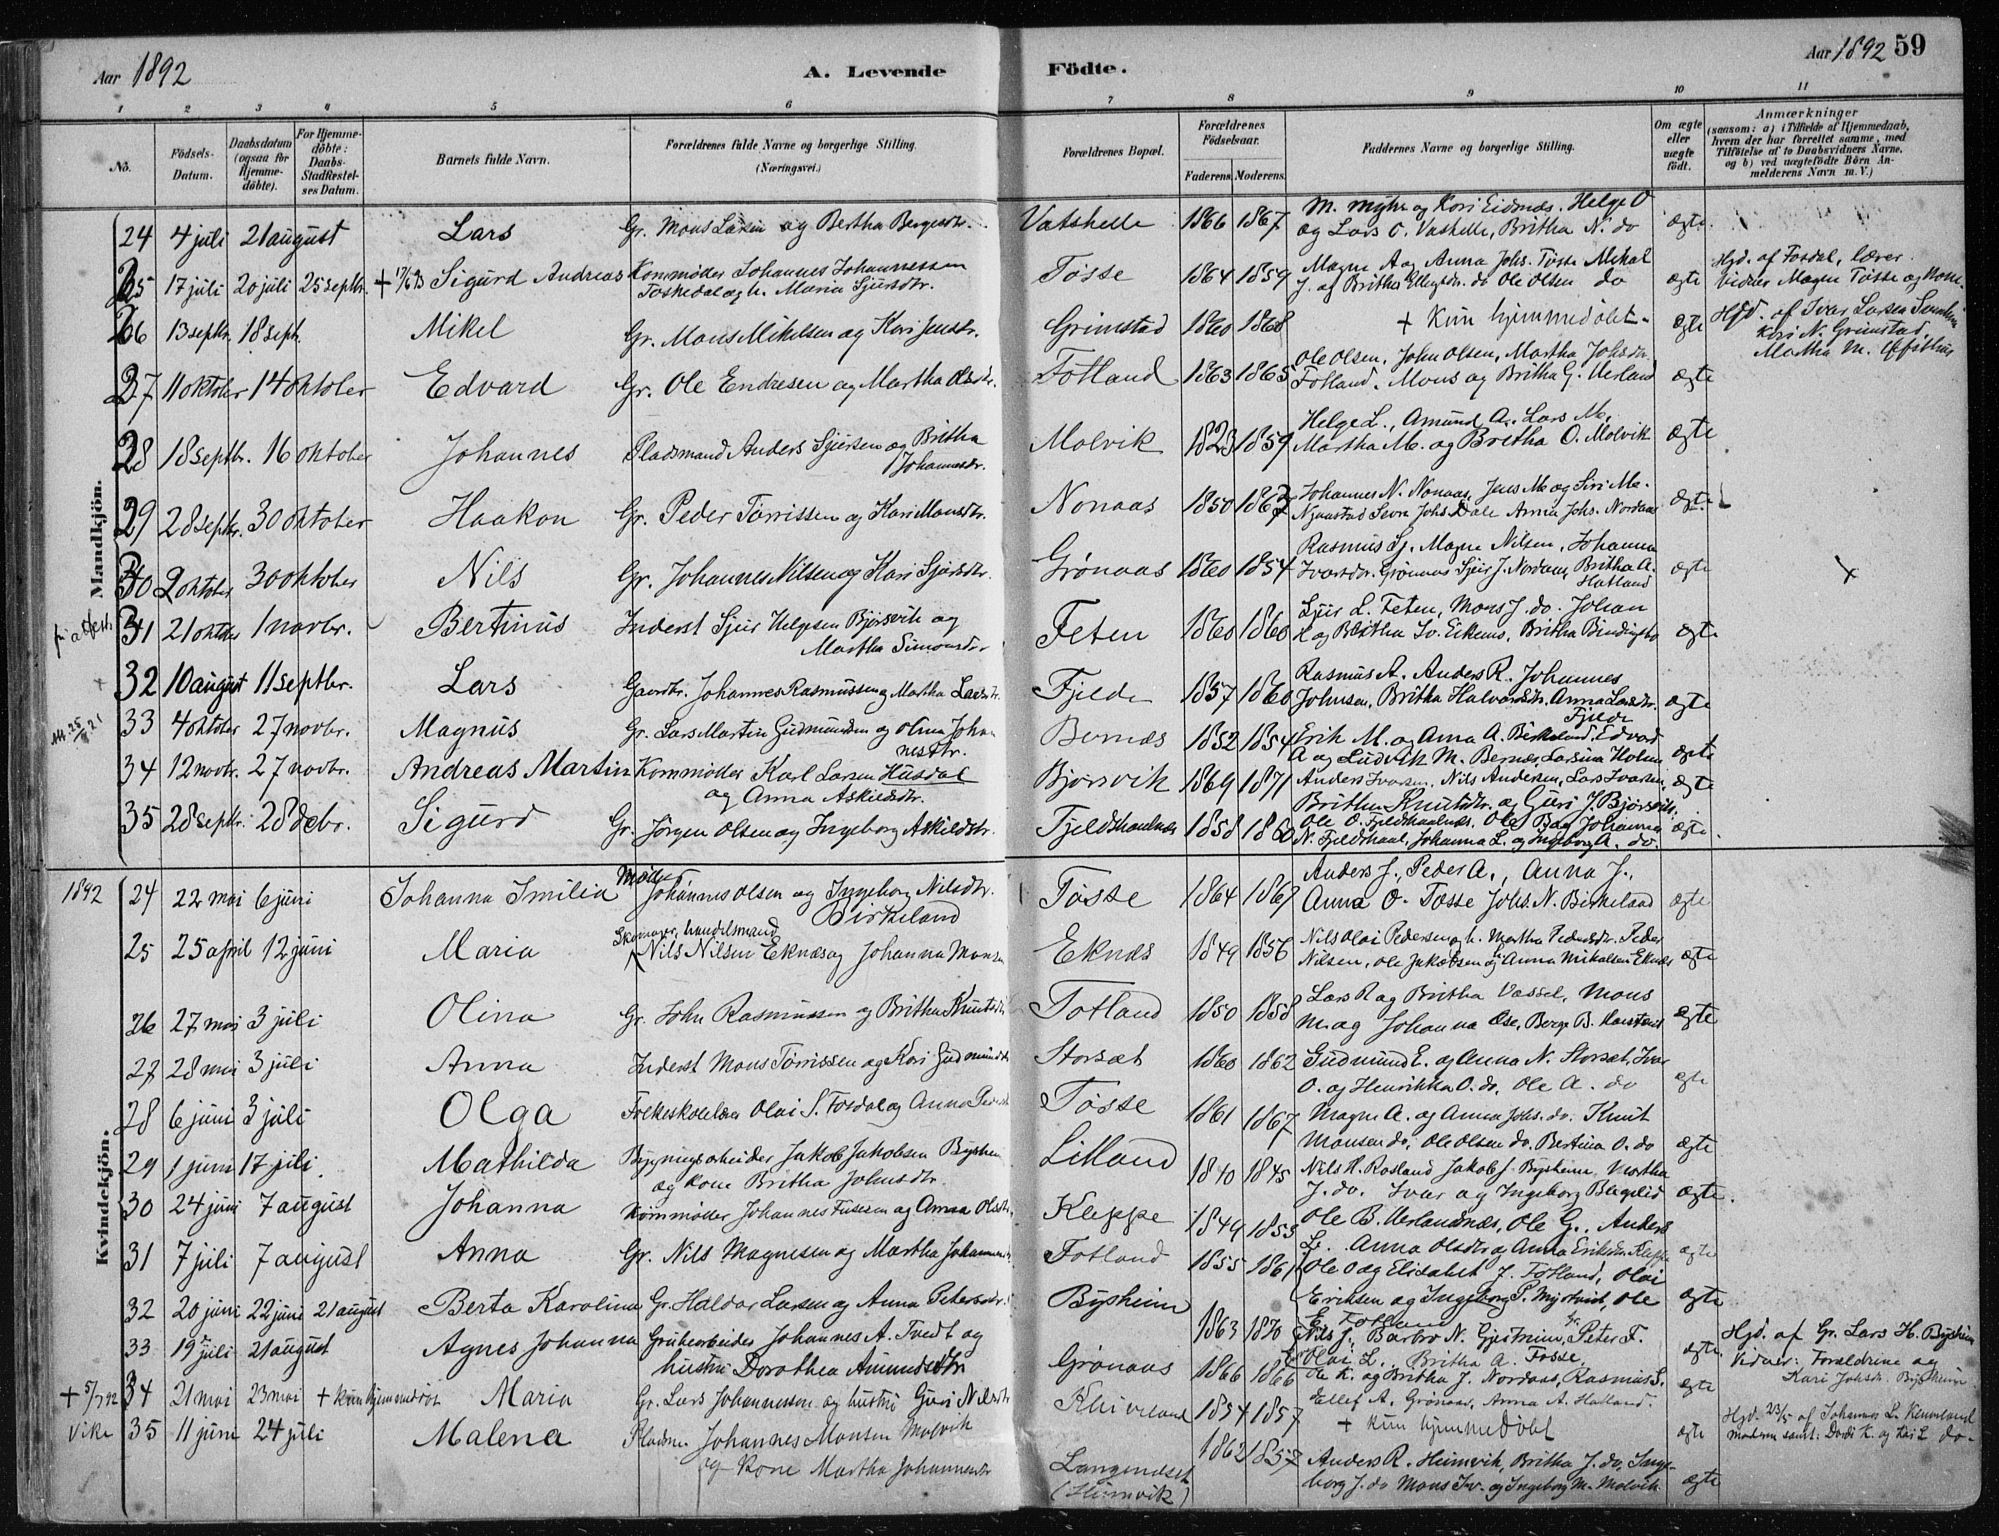 Aar 1892 A. Levende Födte. Aar 1892 59
1 2 3 4 5 6 7 8 9 10 11
No. Födsels-Datum. Daabsdatum (ogsaa for Hjemme-döbte). For Hjemme-döbte: Daabs-Stadfæstelses Datum. Barnets fulde Navn. Forældrenes fulde Navne og borgerlige Stilling. (Næringsvei.) Forældrenes Bopæl. Forældrenes Födselsaar. Faderens. Moderens. Faddernes Navne og borgerlige Stilling. Om ægte eller uægte födt. Anmærkninger (saasom: a) i Tilfælde af Hjemmedaab, hvem der har forrettet samme, med Tilföielse af to Daabsvidners Navne, og b) ved uægtefödte Börn Anmelderens Navn m. V.)
Mandkjön.
24 4 juli 21 august Lars Gr. Mons Larsen og Bertha Bergesdtr. Vatshelle 1866 1867 M. Myhr og Kari Eidsnæs. Helge O og Lars O. Vashelle, Britha N. do ægte
25 17 juli 20 juli 25 septbr. Sigurd Andreas Kornmøller Johannes Johannessen og h. Maria Sjursdtr. Tøsse 1864 1859 Magne A og Anna Johs. Tøsse Mikal J. do Ole Olsen do ægte Hjd. af Fosdal, lærer. Vidner Magne Tøsse og
26 13 septr. 18 sept. Mikel Gr. Mons Mikelsen og Kari Jensdtr. Grimstad 1860 1868 + Kun hjemmedøbt. ægte Hjd. af Ivar Larsen Kari N. Grimstad Martha M.
27 11 oktober 14 oktober Edvard Gr. Ole Endresen og Martha Olsdtr. Fotland 1863 1865 Ole Olsen, John Olsen, Martha Johsdtr. Fotland. Mons og Britha G. Verland ægte
28 18 septbr. 16 oktober Johannes Pladsmand Anders Sjursen og Britha Johannesdtr. Molvik 1823 1859 Helge L., Amund A., Lars M., Martha M. og Britha O. Molvik ægte
29 28 septr. 30 oktober Haakon Gr. Peder Tørrissen og Kari Monsdtr. Nonaas 1850 Johannes N. Nonaas, Jens M og Siri M. Johs Dale Anna Johs. Nordaas ægte
30 2 oktober 30 oktober Nils Gr. Johannes Nilsen og Kari Sjursdtr. Grønaas 1860 1854 Rasmus Sj. Magne Nilsen, Johanna Ivarsdtr. Grønaas Sjur J. Nordaas, Britha A. Hatland ægte
31 21 oktober 1 novbr. Bertinus Inderst Sjur Helgesen Bjørsvik og Martha Simonsdtr. Feten 1860 1860 Sjur L. Feten, Mons J. do. Johan og Britha Iv. Eikemo, Britha ægte
32 10 august 11 septbr. Lars Gaardbr. Johannes Rasmussen og Martha Larsdtr. Fjelde 1857 1860 Rasmus A. Anders R. Johannes Johnsen, Britha Halvorsdtr. Anna Larsdtr. Fjelde ægte
33 4 oktober 27 novbr. Magnus Gr. Lars Martin Gudmundsen og Olina Johannesdtr. Bernæs 1852 1854 Erik M. og Anna A. Birkeland. Edvard A og Ludvik M. Bernæs, Larsina Holme ægte
34 12 novbr. 27 novbr. Andreas Martin Kornmøller Karl Larsen Husdal og Anna Askildsdtr. Bjørsvik 1869 1871 Anders Ivarsen, Nils Andersen, Lars Ivarsen, Britha Knutsdtr. og Guri J. Bjørsvik. ægte
35 28 septr. 28 decbr. Sigurd Gr. Jørgen Olsen og Ingeborg Askildsdtr. Fjeldskaalnæs 1858 1860 Ole O. Fjeldskaalnæs. Ole Johanna N. Fjeldskaal, Johanna L. og Ingeborg A. do. ægte
Kvindekjön.
1892 24 22 mai 6 juni Johanna Imilia Møller Johannes Olsen og Ingeborg Nilsdtr. Birkeland Tøsse 1864 1867 Anders J., Peder A., Anna J., Anna O. Tøsse Johs. N. Birkeland ægte
25 25 april 12 juni Maria Skomager, handelsmand Nils Nilsen Eknæs og Johanna Eknæs 1849 1856 Nils Olai Pedersen og h. Martha Pedersdtr. Peder Nilsen, Ole Jakobsen og Anna Mikalsen Eknæs ægte
26 27 mai 3 juli Olina Gr. John Rasmussen og Britha Knutsdtr. Totland 1850 1858 Lars R og Britha Vassel, Mons M. og Johanna Berge B. ægte
27 28 mai 3 juli Anna Inderst Mons Tørrissen og Kari Gudmundsdtr. Storsæt 1860 1862 Gudmund E. og Anna N. Storsæt, Ivar O. og Henrikka O. do. Ole A. do ægte
28 6 juni 3 juli Olga Folkeskolelærer Olai S. Fosdal og Anna Pedersdtr. Tøsse 1861 1867 Magne A. og Anna Johs. do. Knut Monsen do, Ole Olsen do. Bertina O. do ægte
29 1 juni 17 juli Mathilda Bygningsarbeider Jakob Jakobsen Bysheim og kone Britha Johnsdtr. Litland 1840 1845 Nils H. Rosland Jakob J. Bysheim, Martha J. do. Ivar og Ingeborg ægte.
30 24 juni 7 august Johanna Kornmøller Johannes og Anna Olsdtr. Kleppe 1849 1853 Ole B. Verlandsnæs, Ole G., Anders L. Anna Olsdtr og Anna Eriksdtr Kleppe ægte
31 7 juli 7 august Anna Gr. Nils Magnesen og Martha Johannesdtr. Fotland 1855 1861 Ole O og Elisabet J. Fotland, Olai Eriksen og Ingeborg P. Ole E. Fotland ægte
32 20 juni 22 juni 21 august Berta Karolina Gr. Haldor Larsen og Anna Petersdtr. Bysheim 1863 1870 Nils J. Barbro N. Peter F. Olai L. Britha A. Tøsse ægte. Hjd. af Gr. Lars H. Bysheim Vidner: Forældrene og Kari Johsdtr. Bysheim
33 19 juli 21 august Agnes Johanna Grubearbeider Johannes A. Tvedt og hustru Dorothea Amundsdtr. Grønaas 1866 1866 Ole K. og Britha J. Nordaas, Rasmus S. Ellef A. Grønaas, Anna A. Hatland. ægte
+ 5/7 92 34 21 mai 23 mai + kun hjemmedøbt Maria Gr. Lars Johannessen og hustru Guri Nilsdtr. 1854 1857 + kun hjemmedøbt ægte Hjd. 23/5 af Johannes L. moderen samt: Dordi K. og Kari L do.
Vike 35 11 juni 24 juli Malena Pladsm. Johannes Monsen Molvik og kone Martha Johannesdtr. Langeindset (Heimvik) 1862 1857 Anders R. Heimvik, Britha J. do, Ingeborg J. do Mons Iv. og Ingeborg M. Molvik ægte